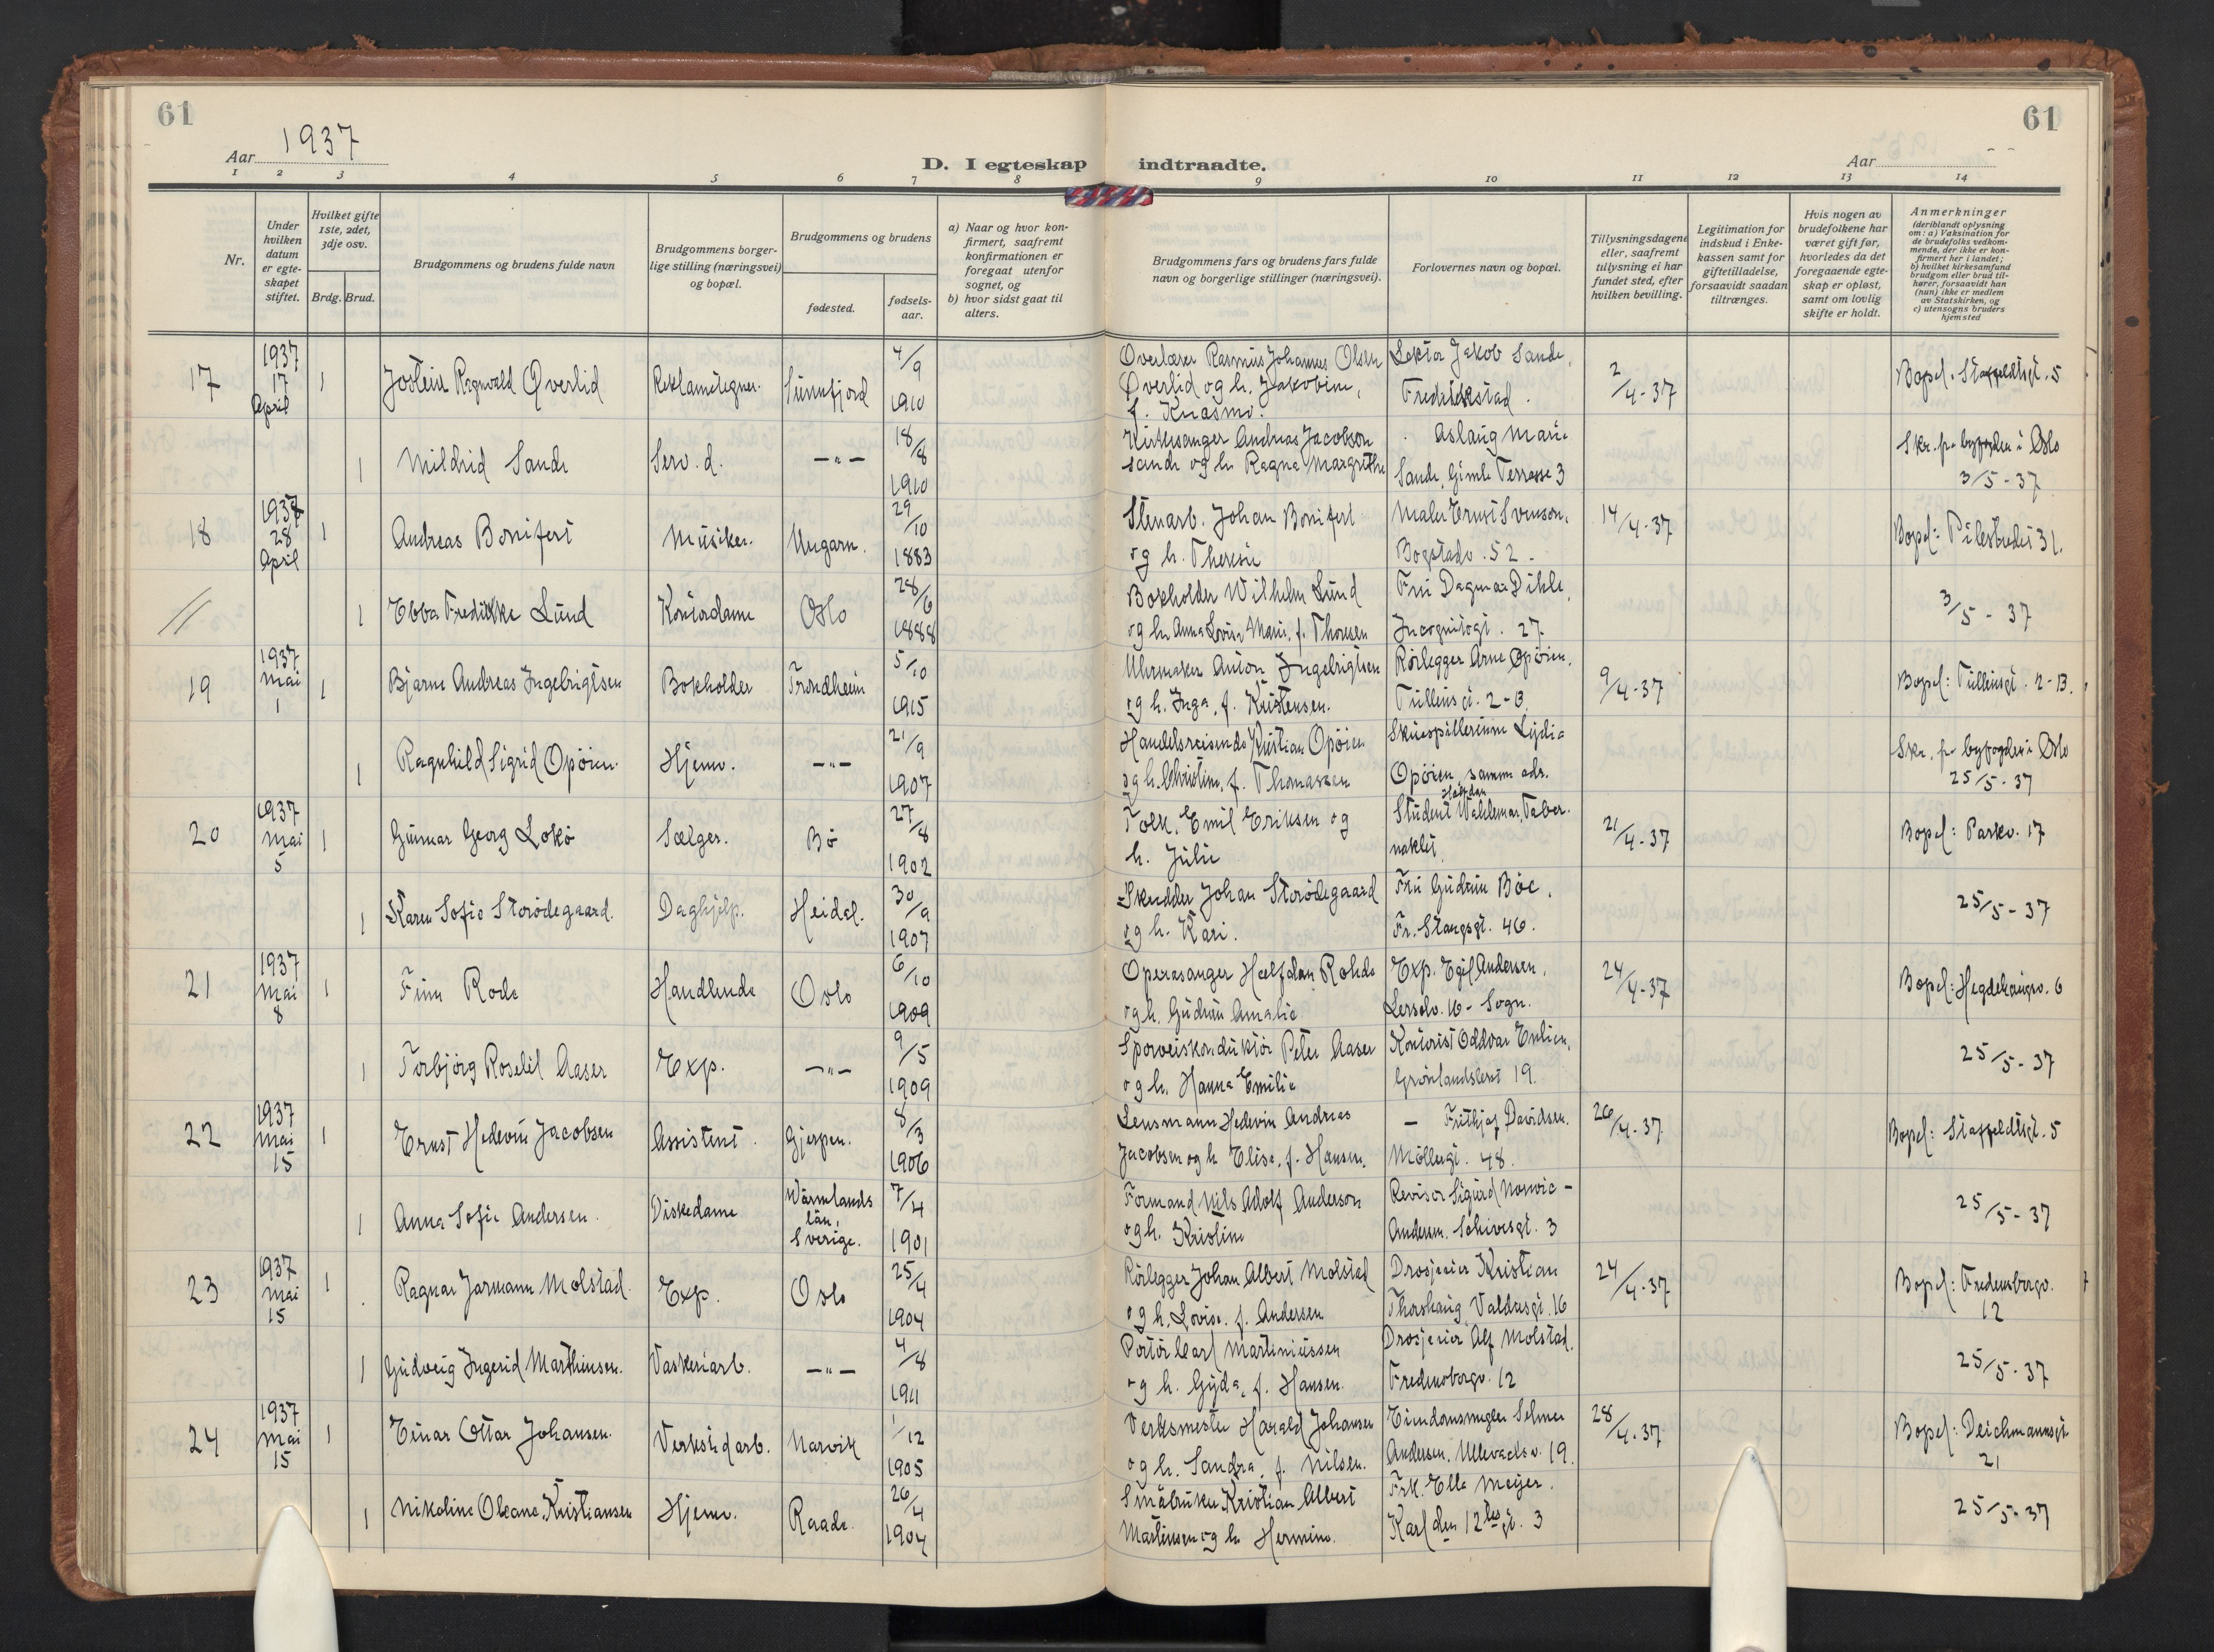 61
61
Aar 1937
D. I egteskap indtraadte.
Aar
1 2 3 4 5 6 7 8 9 10 11 12 13 14
Nr.
Under hvilken datum er egteskapet stiftet.
Hvilket gifte 1ste, 2det, 3dje osv.
Brdg. Brud.
Brudgommens og brudens fulde navn
Brudgommens borgerlige stilling (næringsvei) og bopæl.
Brudgommens og brudens
fødested.
fødselsaar.
a) Naar og hvor konfirmert, saafremt konfirmationen er foregaat utenfor sognet, og
b) hvor sidst gaat til alters.
Brudgommens fars og brudens fars fulde navn og borgerlige stillinger (næringsvei).
Forlovernes navn og bopæl.
Tillysningsdagene eller, saafremt tillysning ei har fundet sted, efter hvilken bevilling.
Legitimation for indskud i Enkekassen samt for giftetilladelse, forsaavidt saadan tiltrænges.
Hvis nogen av brudefolkene har været gift før, hvorledes da det foregaaende egteskap er opløst, samt om lovlig skifte er holdt.
Anmerkninger (deriblandt oplysning om: a) Vaksination for de brudefolks vedkommende, der ikke er konfirmert her i landet; b) hvilket kirkesamfund brudgom eller brud tilhører, forsaavidt han (hun) ikke er medlem av Statskirken, og c) utensogns bruders hjemsted
17 1937 17 April 1 Jostein Ragnvald Øverlid Reklametegner. Sunnfjord 4/9 1910 Overlærer Rasmus Johannes Olsen Øverlid og h. Jakobine, f. Knasmo. Lektor Jakob Sande, Fredrikstad. 2/4-37 Bopel. Staffeldtsgt. 5
1 Mildrid Sande Serv. d. —"— 18/8 1910 Kirkesanger Andreas Jacobson Sande og h. Ragna Margrethe Aslaug Marie Sande, Gimle Terrasse 3 Skr. fra byfogden i Oslo 3/5-37
18 1937 28 April 1 Andreas Bonifert Musiker. Ungarn. 29/10 1883 Stenarb. Johan Bonifert og h. Theresie Maler Ernst Svenson, Bogstadv. 52. 14/4-37 Bopel: Pilestredet 31.
1 Ebba Fredrikke Lund Kontordame Oslo 28/6 1888 Bokholder Wilhelm Lund og h. Anna Lovise Marie, f. Thoresen Fru Dagmar Dihle, Incognitogt. 27 3/5-37
19 1937 mai 1 1 Bjarne Andreas Ingebrigtsen Bokholder Trondheim 5/10 1915 Uhrmaker Anton Ingebrigtsen og h. Inga, f. Kristensen. Rørlegger Arne Opøien, Tullinsgt. 2-B. 9/4-37 Bopel: Tullinsgt. 2-B.
1 Ragnhild Sigrid Opøien. Hjemv. —"— 21/9 1907 Handelsreisende Kristian Opøien og h. Christine, f. Thomassen Skuespillerinne Lydia Opøien, samme adr. Skr. fra byfogden i Oslo 25/5-37
20 1937 mai 5 1 Gunnar Georg Lokø Sælger. Bø 27/8 1902 Tolk. Emil Eriksen og h. Julie Student Halfdan Waldemar, Tabernaklet. 21/4-37 Bopel: Parkv. 17
1 Karen Sofie Storødegaard. Daghjelp. Heidal. 30/9 1907 Skredder Johan Storødegaard og h. Kari. Fru Gudrun Bøe, Fr. Stangsgt. 46. 25/5-37
21 1937 mai 8 1 Finn Rode Handlende Oslo 6/10 1909 Operasanger Halfdan Rohde og h. Gudrun Amalie Exp. Egil Andersen, Lersolv. 16 - Sogn. 24/4-37 Bopel: Hegdehaugsv. 6
1 Torbjørg Roselil Aaser Exp. —"— 9/5 1909 Sporveiskonduktør Peter Aaser og h. Hanna Emilie Kontorist Oddvar Enlien, Grønlandsleret 19. 25/5-37
22 1937 mai 15 1 Ernst Hedevin Jacobsen Assistent. Gjerpen. 8/3 1906 Lensmann Hedevin Andreas Jacobsen og h. Elise, f. Hansen. — Frithjof Davidsen. Møllergt. 48. 26/4-37 Bopel: Staffeldtsgt. 5
1 Anna Sofie Andersen. Diskedame Wärmlands län, Sverige. 7/4 1901 Formand Nils Adolf Anderson og h. Kristine Revisor Sigurd Norvic - Andersen. Schivesgt. 3 25/5-37
23 1937 mai 15 1 Ragnar Jarmann Molstad. Exp. Oslo 25/4 1904 Rørlegger Johan Albert Molstad og h. Lovise, f. Andersen Drosjeeier Kristian Thorshaug, Valdresgt. 16 24/4-37 Bopel: Fredensborgv. 12
1 Gudveig Ingerid Marthinsen. Vaskeriarb. —"— 4/8 1911 Portør Carl Martiniussen og h. Gyda, f. Hansen. Drosjeeier Alf Molstad. Fredensborgv. 12 25/5-37
24 1937 mai 15 1 Einar Ottar Johansen. Verkstedarb. Narvik 1/12 1905 Verksmester Harald Johansen og h. Sandra, f. Nilsen. Eiendomsmegler Selmer Andersen, Ullevaalsv. 19. 28/4-37 Bopel: Deichmannsgt. 21
1 Nikoline Oleane Kristiansen Hjemv. Raade. 26/4 1904 Småbruker Kristian Albert Martinsen og h. Hermine. Frk. Ella Meyer. Karl den 12tes gt. 3 25/5-37